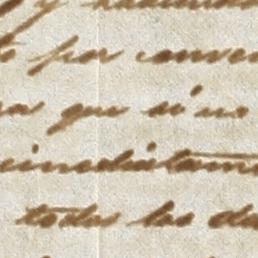 y
por conven
que si no
inmediatame
todos los da